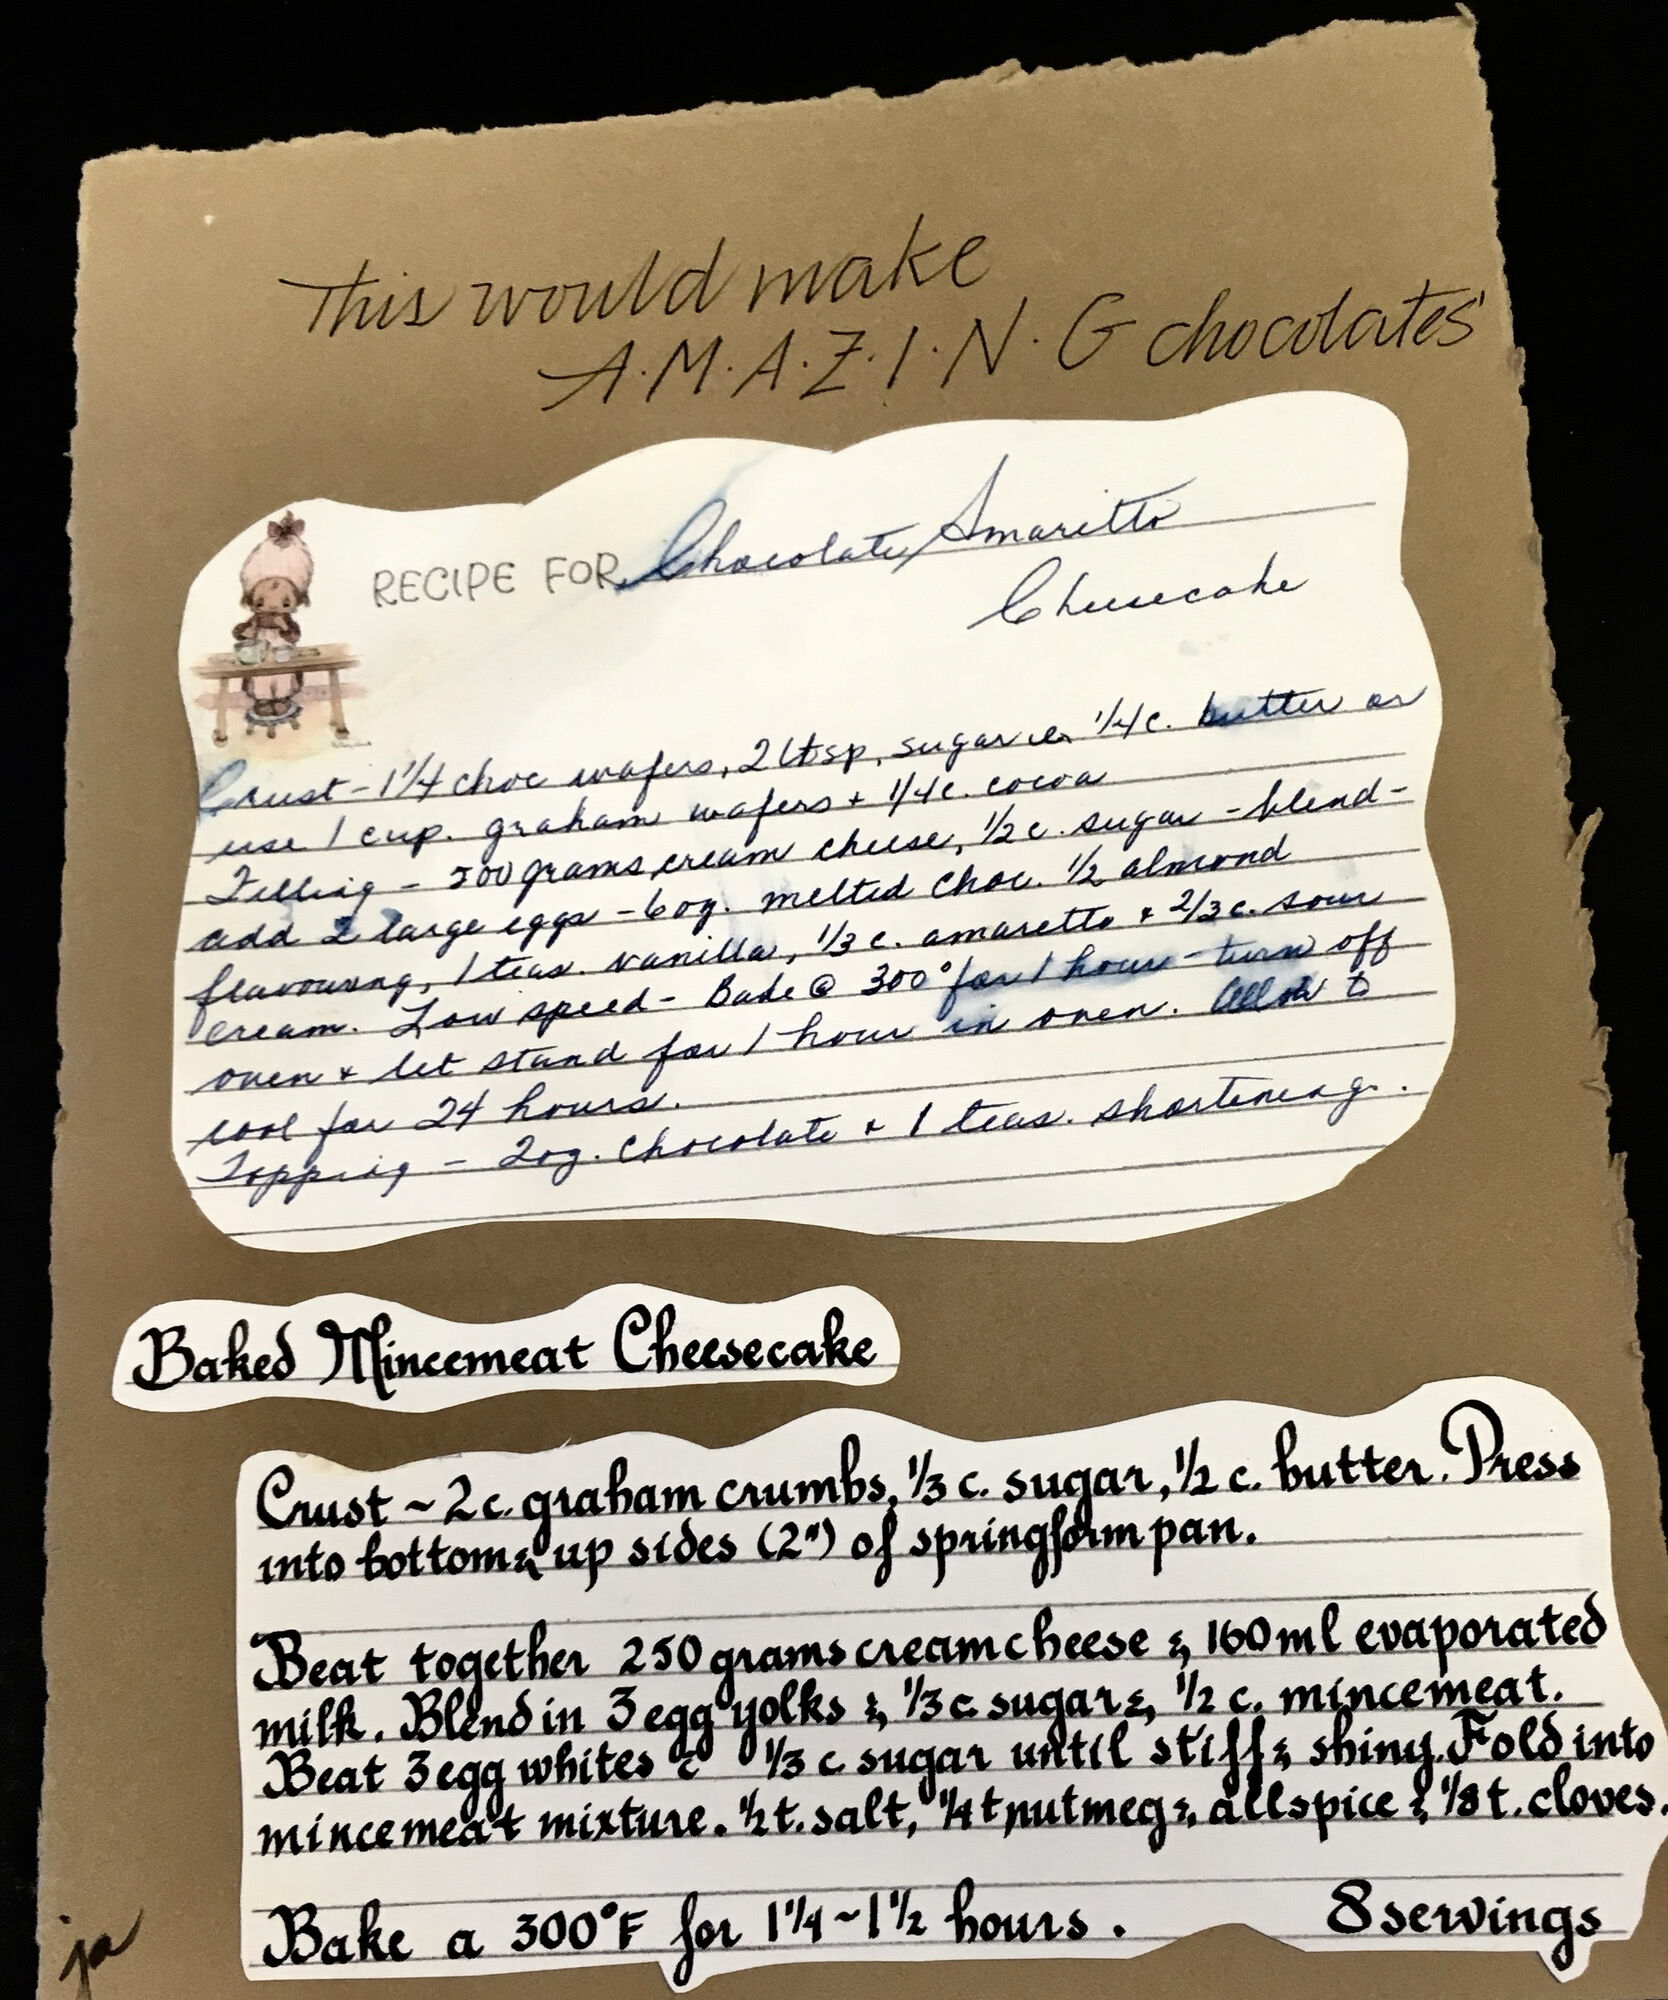 This would make
A.M.A.Z.I.N.G chocolates
RECIPE FOR Chocolate Amaritto
Cheesecake
Crust - 1 1/4 choc wafers, 2 tbsp, sugar 1/4 c. butter or
use 1 cup. graham wafers + 1/4 c. cocoa
Filling - 500 grams cream cheese, 1/2 c. sugar - blend -
add 2 large eggs - 6 oz. melted choc. 1/2 almond
flavouring, 1 teas. vanilla, 1/3 c. amaretto + 2/3 c. sour
cream. Low speed - Bake @ 300° for 1 hour - turn off
oven + let stand for 1 hour in oven. Allow to
cool for 24 hours.
Topping - 2 oz. chocolate + 1 teas. shortening.
Baked Mincemeat Cheesecake
Crust ~ 2 c. graham crumbs, 1/3 c. sugar, 1/2 c. butter. Press
into bottom & up sides (2") of springform pan.
Beat together 250 grams cream cheese & 160 ml evaporated
milk. Blend in 3 egg yolks & 1/3 c. sugar & 1/2 c. mincemeat.
Beat 3 egg whites c 1/3 c sugar until stiff & shiny. Fold into
mincemeat mixture. 1/2 t. salt, 1/4 t nutmeg & allspice & 1/8 t. cloves.
Bake a 300°F for 1 1/4 ~ 1 1/2 hours. 8 servings
ja